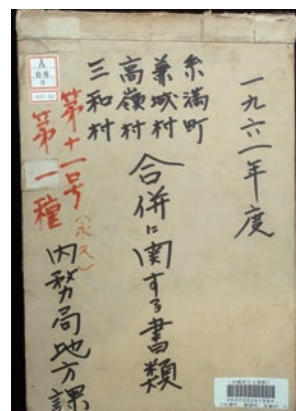 一九六一年度
糸満町
兼城村
高嶺村
三和村
合併に関する書類
第十一号
(永久)
第一種
内務局地方課
A